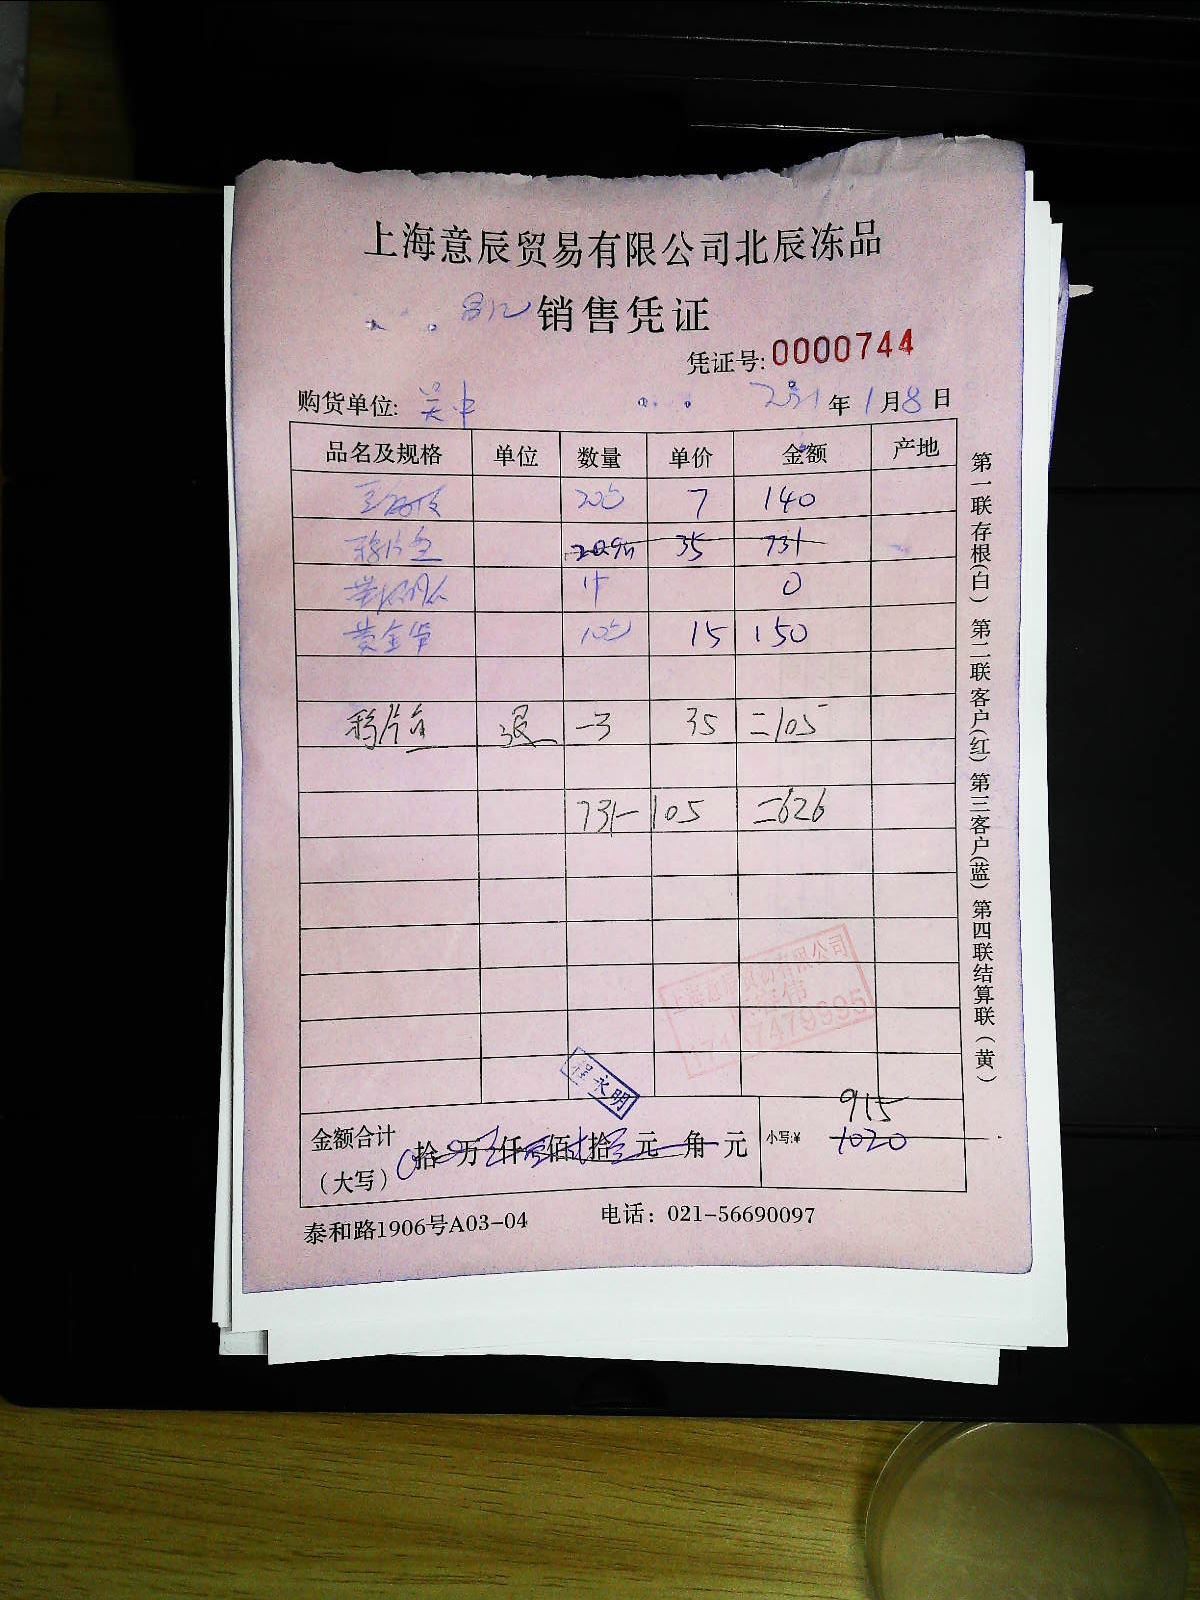 上海意辰贸易有限公司北辰冻品
销售凭证
凭证号: 0000744
购货单位: 吴中 年 1月8日
品名及规格 单位 数量 单价 金额 产地
20包 7 140
20.9斤 35 731
0
黄金 10包 15 150
退 -3 35 =105
731-105 =626
上海意辰贸易有限公司
程永明
金额合计
(大写)
拾 万 仟 佰 拾 元 角 元
小写:¥
915
1020
泰和路1906号A03-04 电话: 021-56690097
第一联存根(白) 第二联客户(红) 第三客户(蓝) 第四联结算联(黄)